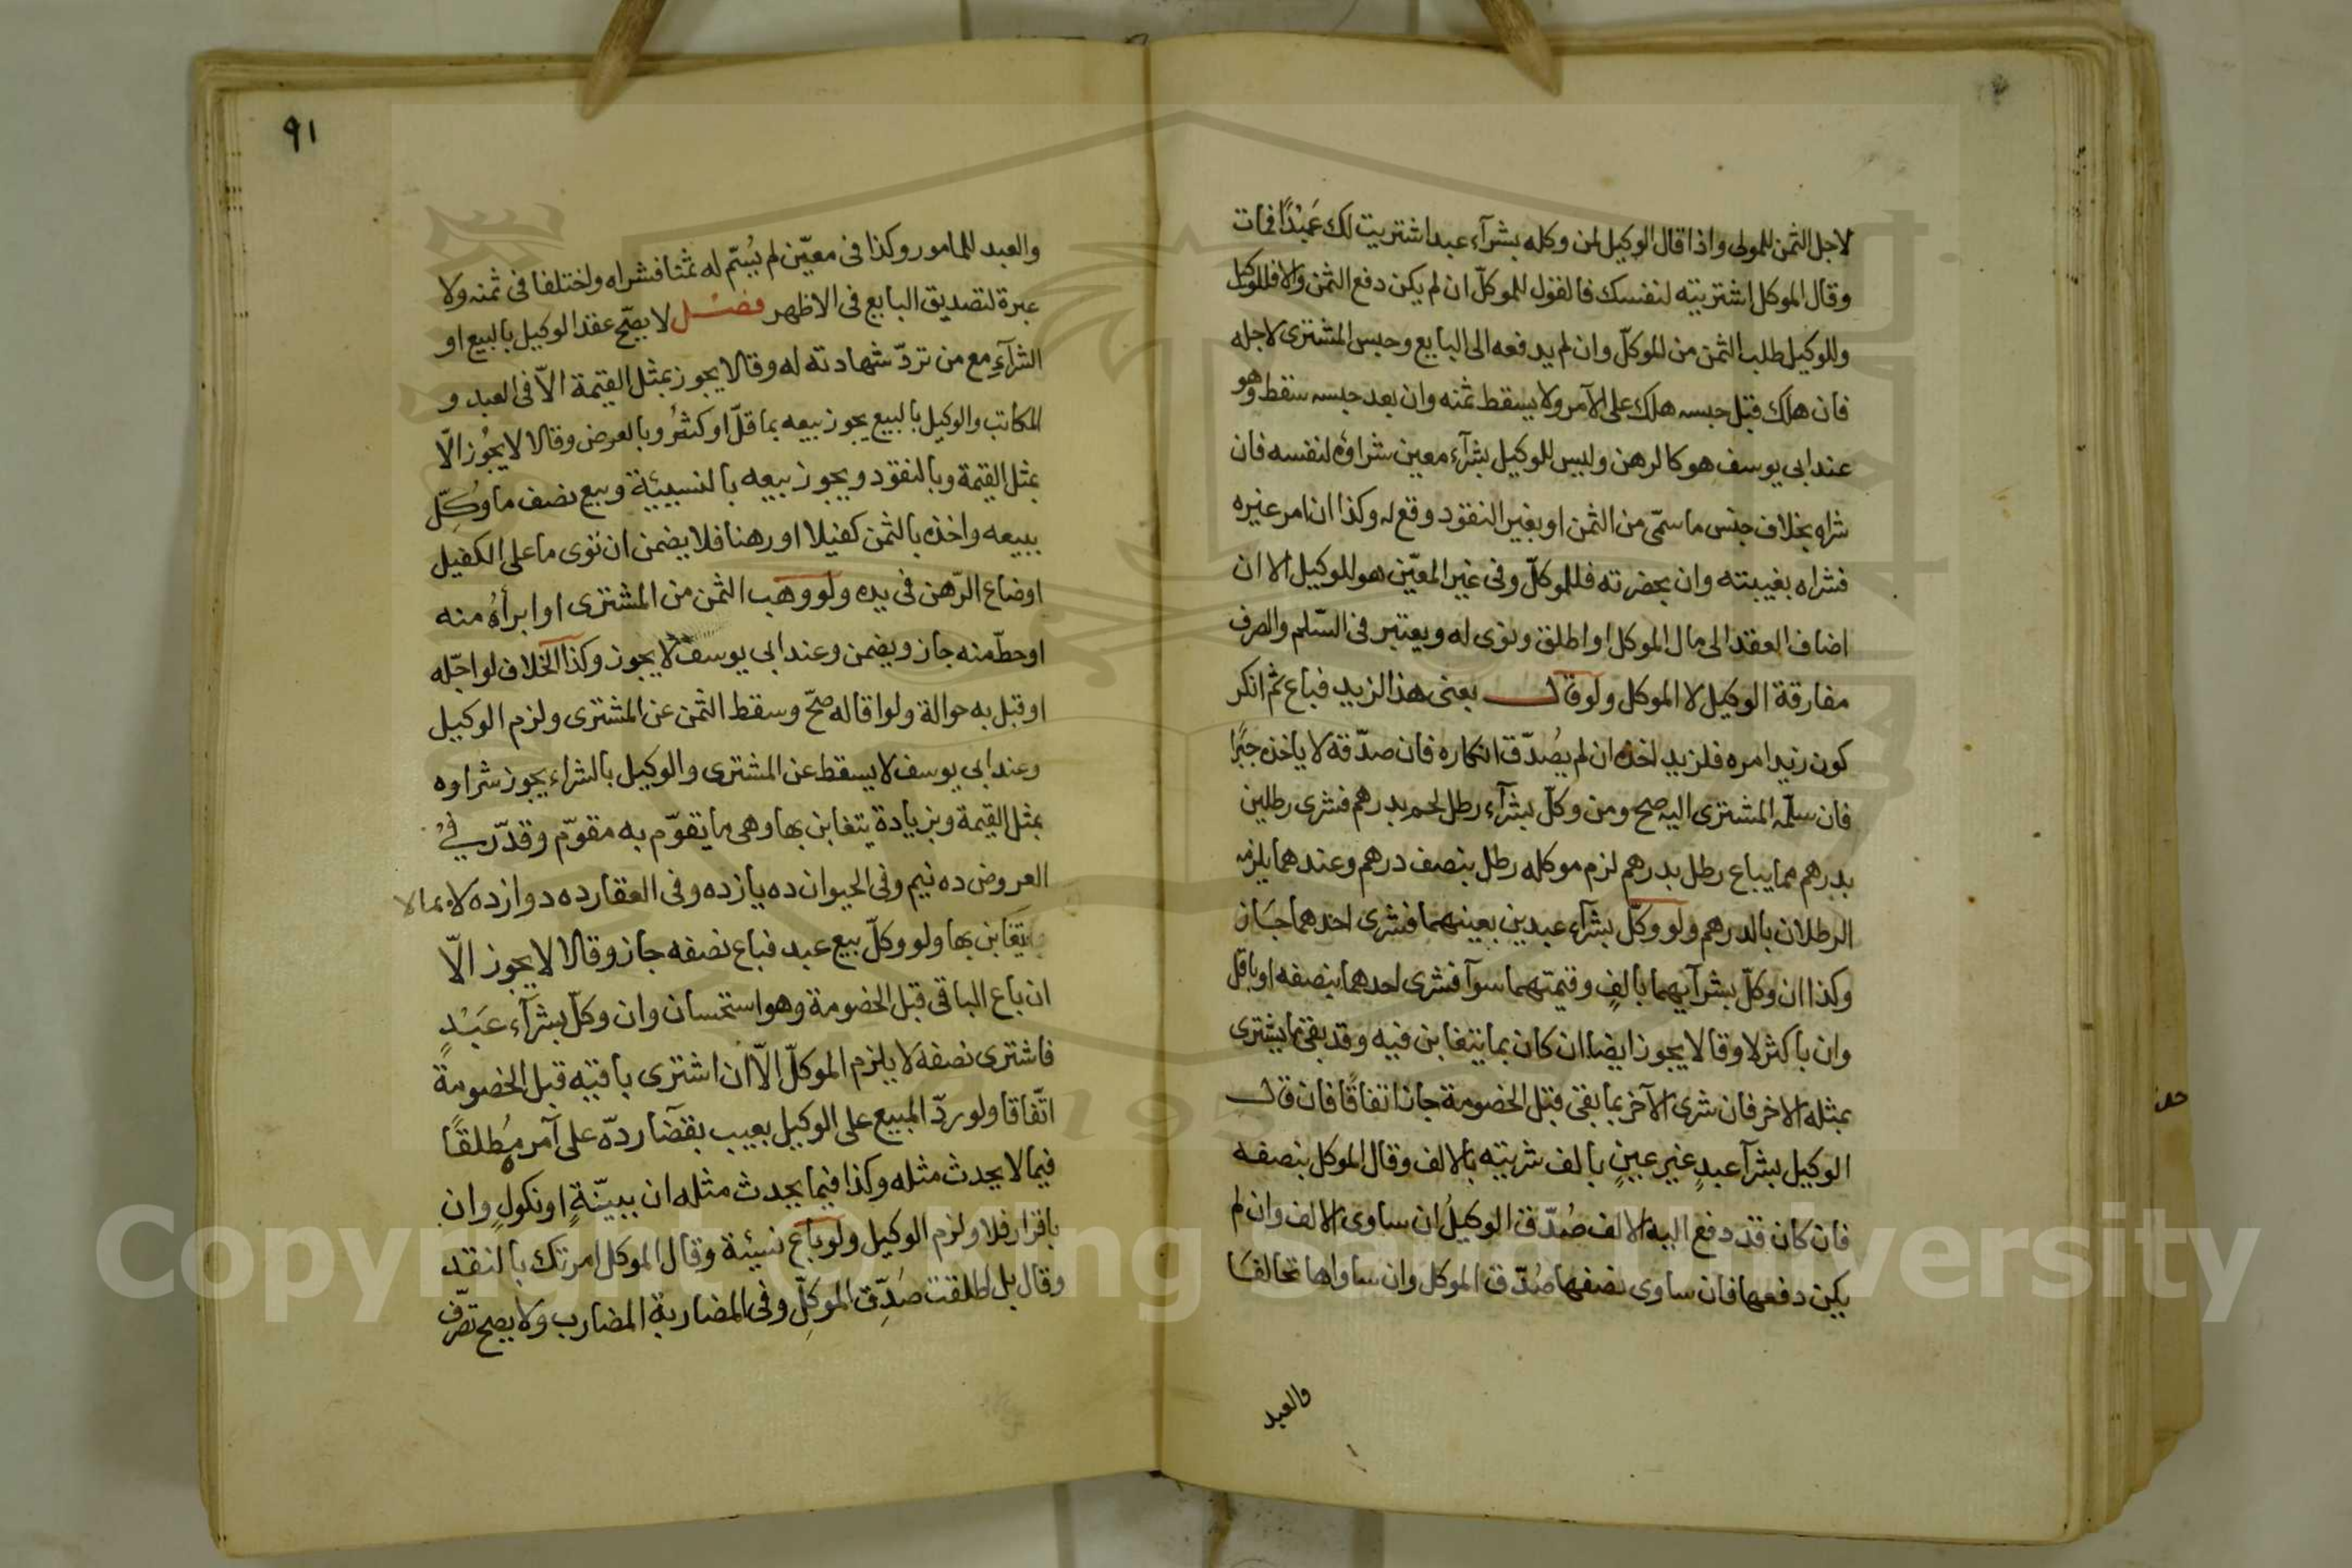 لاجل الثمن للمولى واذا قال الوكيل لمن وكله بشرآء عبد اشتريت لك عَبْدًا فمات
وقال الموكل اشتريته لنفسك فالقول للموكلّ ان لم يكن دفع الثمن والا فللوكيل
وللوكيل طلب الثمن من الموكلّ وان لم يدفعه الى البايع وحبس المشترى لاجله
فان هلك قبل حبسه هلك على الآمر ولا يسقط ثمنه وان بعد حبسه سقط وهو
عند ابى يوسف هو كالرهن وليس للوكيل بشرآء معين شراؤه لنفسه فان
شراه بخلاف جنس ما سمّى من الثمن او بغير النقود وقع له وكذا ان امر غيره
فشراه بغيبته وان بحضرته فللموكلّ وفى غير المعيّن هو للوكيل الا ان
اضاف العقد الى مال الموكل او اطلق ونوى له ويعتبر فى السّلم والصرف
مفارقة الوكيل لا الموكل ولو قال بعنى هذا لزيد فباع ثم انكر
كون زيد امره فلزيد اخذه ان لم يُصدّق انكاره فان صدّقه لا ياخذه جبرًا
فان سلّمه المشترى اليه صح ومن وكلّ بشرآء رطل لحم بدرهم فشرى رطلين
بدرهم مما يباع رطل بدرهم لزم موكله رطل بنصف درهم وعندهما يلزمه
الرطلان بالدرهم ولو وكلّ بشرآء عبدين بعينهما فشرى احدهما جَاز
وكذا ان وكلّ بشرآيهما بالفٍ وقيمتهما سوآ فشرى احدهما بنصفه او باقل
وان باكثر لا وقالا يجوز ايضا ان كان بما يتغابن فيه وقد بقى ما يشترى
بمثله الاخر فان شرى الآخر بما بقى قبل الخصومة جاز اتفاقًا فان قال
الوكيل بشرآ عبدٍ غير عينٍ بالف شريته بالالف وقال الموكل بنصفه
فان كان قد دفع اليه الالف صُدّق الوكيلُ ان ساوى الالف وان لم
يكن دفعها فان ساوى نصفها صُدّق الموكل وان ساواها تحالفَا
والعبد
٩١
والعبد للمامور وكذا فى معيّن لم يُسَمّ له ثمنا فشراه واختلفا فى ثمنه ولا
عبرة لتصديق البايع فى الاظهر فصْل لا يصّح عقد الوكيل بالبيع او
الشرآءِ مع من تردّ شهادته له وقالا يجوز بمثل القيمة الاّ فى العبد و
المكاتب والوكيل بالبيع يجوز بيعه بما قلّ او كثُر وبالعرض وقالا لا يجُوز الّا
بمثل القيمة وبالنقود ويجوز بيعه بالنسيئة وبيع نصف ما وُكِلّ
ببيعه واخذه بالثمن كفيلا او رهنا فلا يضمن ان توى ما على الكفيل
او ضاع الرّهن فى يده ولو وهب الثمن من المشترى او ابرأهُ منه
او حطّ منه جاز ويضمن وعند ابي يوسف لا يجوز وكذا الخلاف لو اجّله
او قبل به حوالة ولو اقاله صحّ وسقط الثمن عن المشترى ولزم الوكيل
وعند ابي يوسف لا يسقط عن المشترى والوكيل بالشراء يجوز شراوه
بمثل القيمة وبزيادة يتغابن بها وهى ما يقوّم به مقوّم وقدّر في
العروض ده نيم وفى الحيوان ده يازده وفى العقار ده دوازده لا بما لا
يتغابن بها ولو وكلّ بيع عبد فباع نصفه جاز وقالا لا يجوز الّا
ان باع الباقى قبل الخصومة وهو استحسان وان وكلّ بشرآء عَبْدٍ
فاشترى نصفه لا يلزم الموكلّ الاّ ان اشترى باقيه قبل الخصومةً
اتّفاقا ولو ردّ المبيع على الوكيل بعيب بقضآ ردّه على آمر مُطلقًا
فيما لا يحدث مثله وكذا فيما يحدث مثله ان ببيّنةٍ او نكولٍ وان
باقرار فلا ولزم الوكيل ولو باع نسيئة وقال الموكل امرتك بالنقد
وقال بل اطلقت صُدِّق الموكلّ وفى المضاربة المضارب ولا يصح تصّرف
Copyright © King Saud University